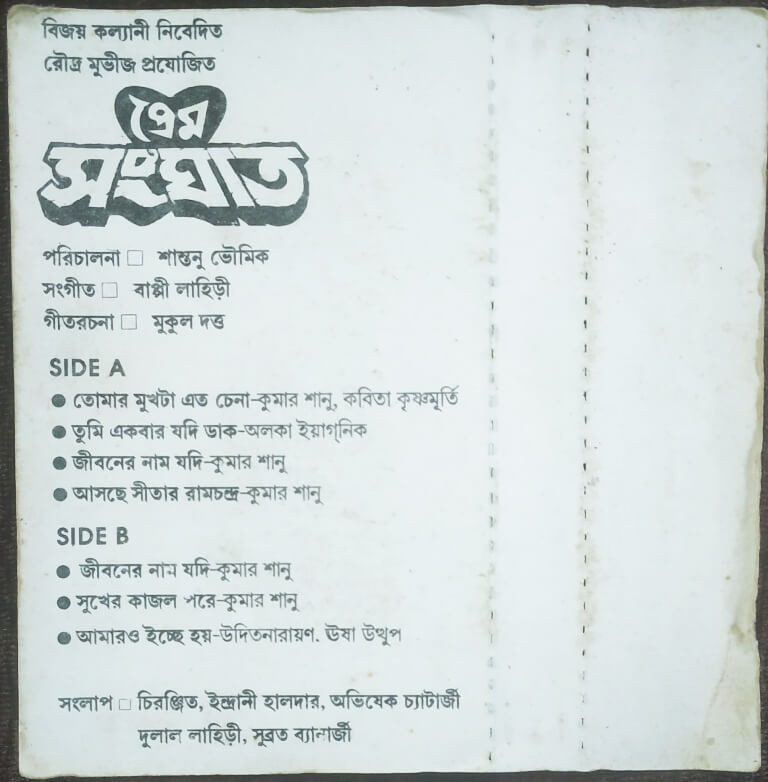 বিজয় কল্যানী নিবেদিত
রৌদ্র মূভীজ প্রযোজিত
প্রেম
সংঘাত
পরিচালনা □ শান্তনু ভৌমিক
সংগীত □ বাপ্পী লাহিড়ী
গীতরচনা □ মুকুল দত্ত
SIDE A
● তোমার মুখটা এত চেনা-কুমার শানু, কবিতা কৃষ্ণমূর্তি
● তুমি একবার যদি ডাক-অলকা ইয়াগ্‌নিক
● জীবনের নাম যদি-কুমার শানু
● আসছে সীতার রামচন্দ্র-কুমার শানু
SIDE B
● জীবনের নাম যদি-কুমার শানু
● সুখের কাজল পরে-কুমার শানু
● আমারও ইচ্ছে হয়-উদিতনারায়ণ. ঊষা উত্থুপ
সংলাপ □ চিরঞ্জিত, ইন্দ্রানী হালদার, অভিষেক চ্যাটার্জী
দুলাল লাহিড়ী, সুব্রত ব্যানার্জী